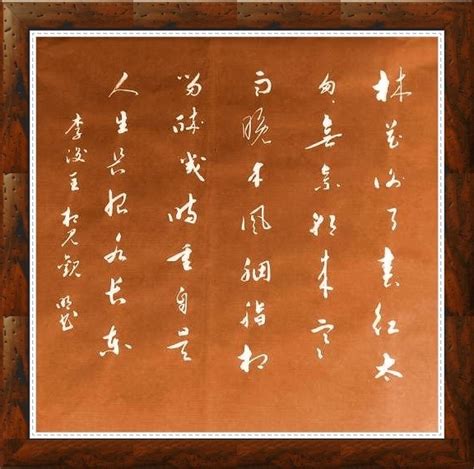 林花谢了春红太
匆匆無奈朝来寒
雨晚来風胭脂相
留醉幾時重自是
人生长恨水长东
李後主相见歡